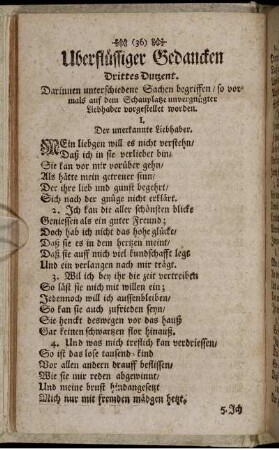 (36)
Uberflüssiger Gedancken
Drittes Dutzent.
Darinnen unterschiedene Sachen begriffen/ so vor-
mals auf dem Schauplatze unvergnügter
Liebhaber vorgestellet worden.
I.
Der unerkannte Liebhaber.
MEin liebgen will es nicht verstehn/
Daß ich in sie verliebet bin/
Sie kan vor mir vorüber gehn/
Als hätte mein getreuer sinn/
Der ihre lieb und gunst begehrt/
Sich nach der gnüge nicht erklärt.
2. Ich kan die aller schönsten blicke
Geniessen als ein guter Freund;
Doch hab ich nicht das hohe glücke/
Daß sie es in dem hertzen meint/
Daß sie auff mich viel kundschafft legt
Und ein verlangen nach mir trägt.
3. Wil ich bey ihr die zeit vertreiben
So läst sie mich mit willen ein;
Jedennoch will ich aussenbleiben/
So kan sie auch zufrieden seyn/
Sie henckt deswegen vor das hauß
Gar keinen schwartzen flor hinauß.
4. Und was mich treflich kan verdriessen/
So ist das lose tausend-kind
Vor allen andern drauff beflissen/
Wie sie mir reden abgewinnt/
Und meine brust hindangesetzt
Mich nur mit fremden mädgen hetzt.
5. Ich